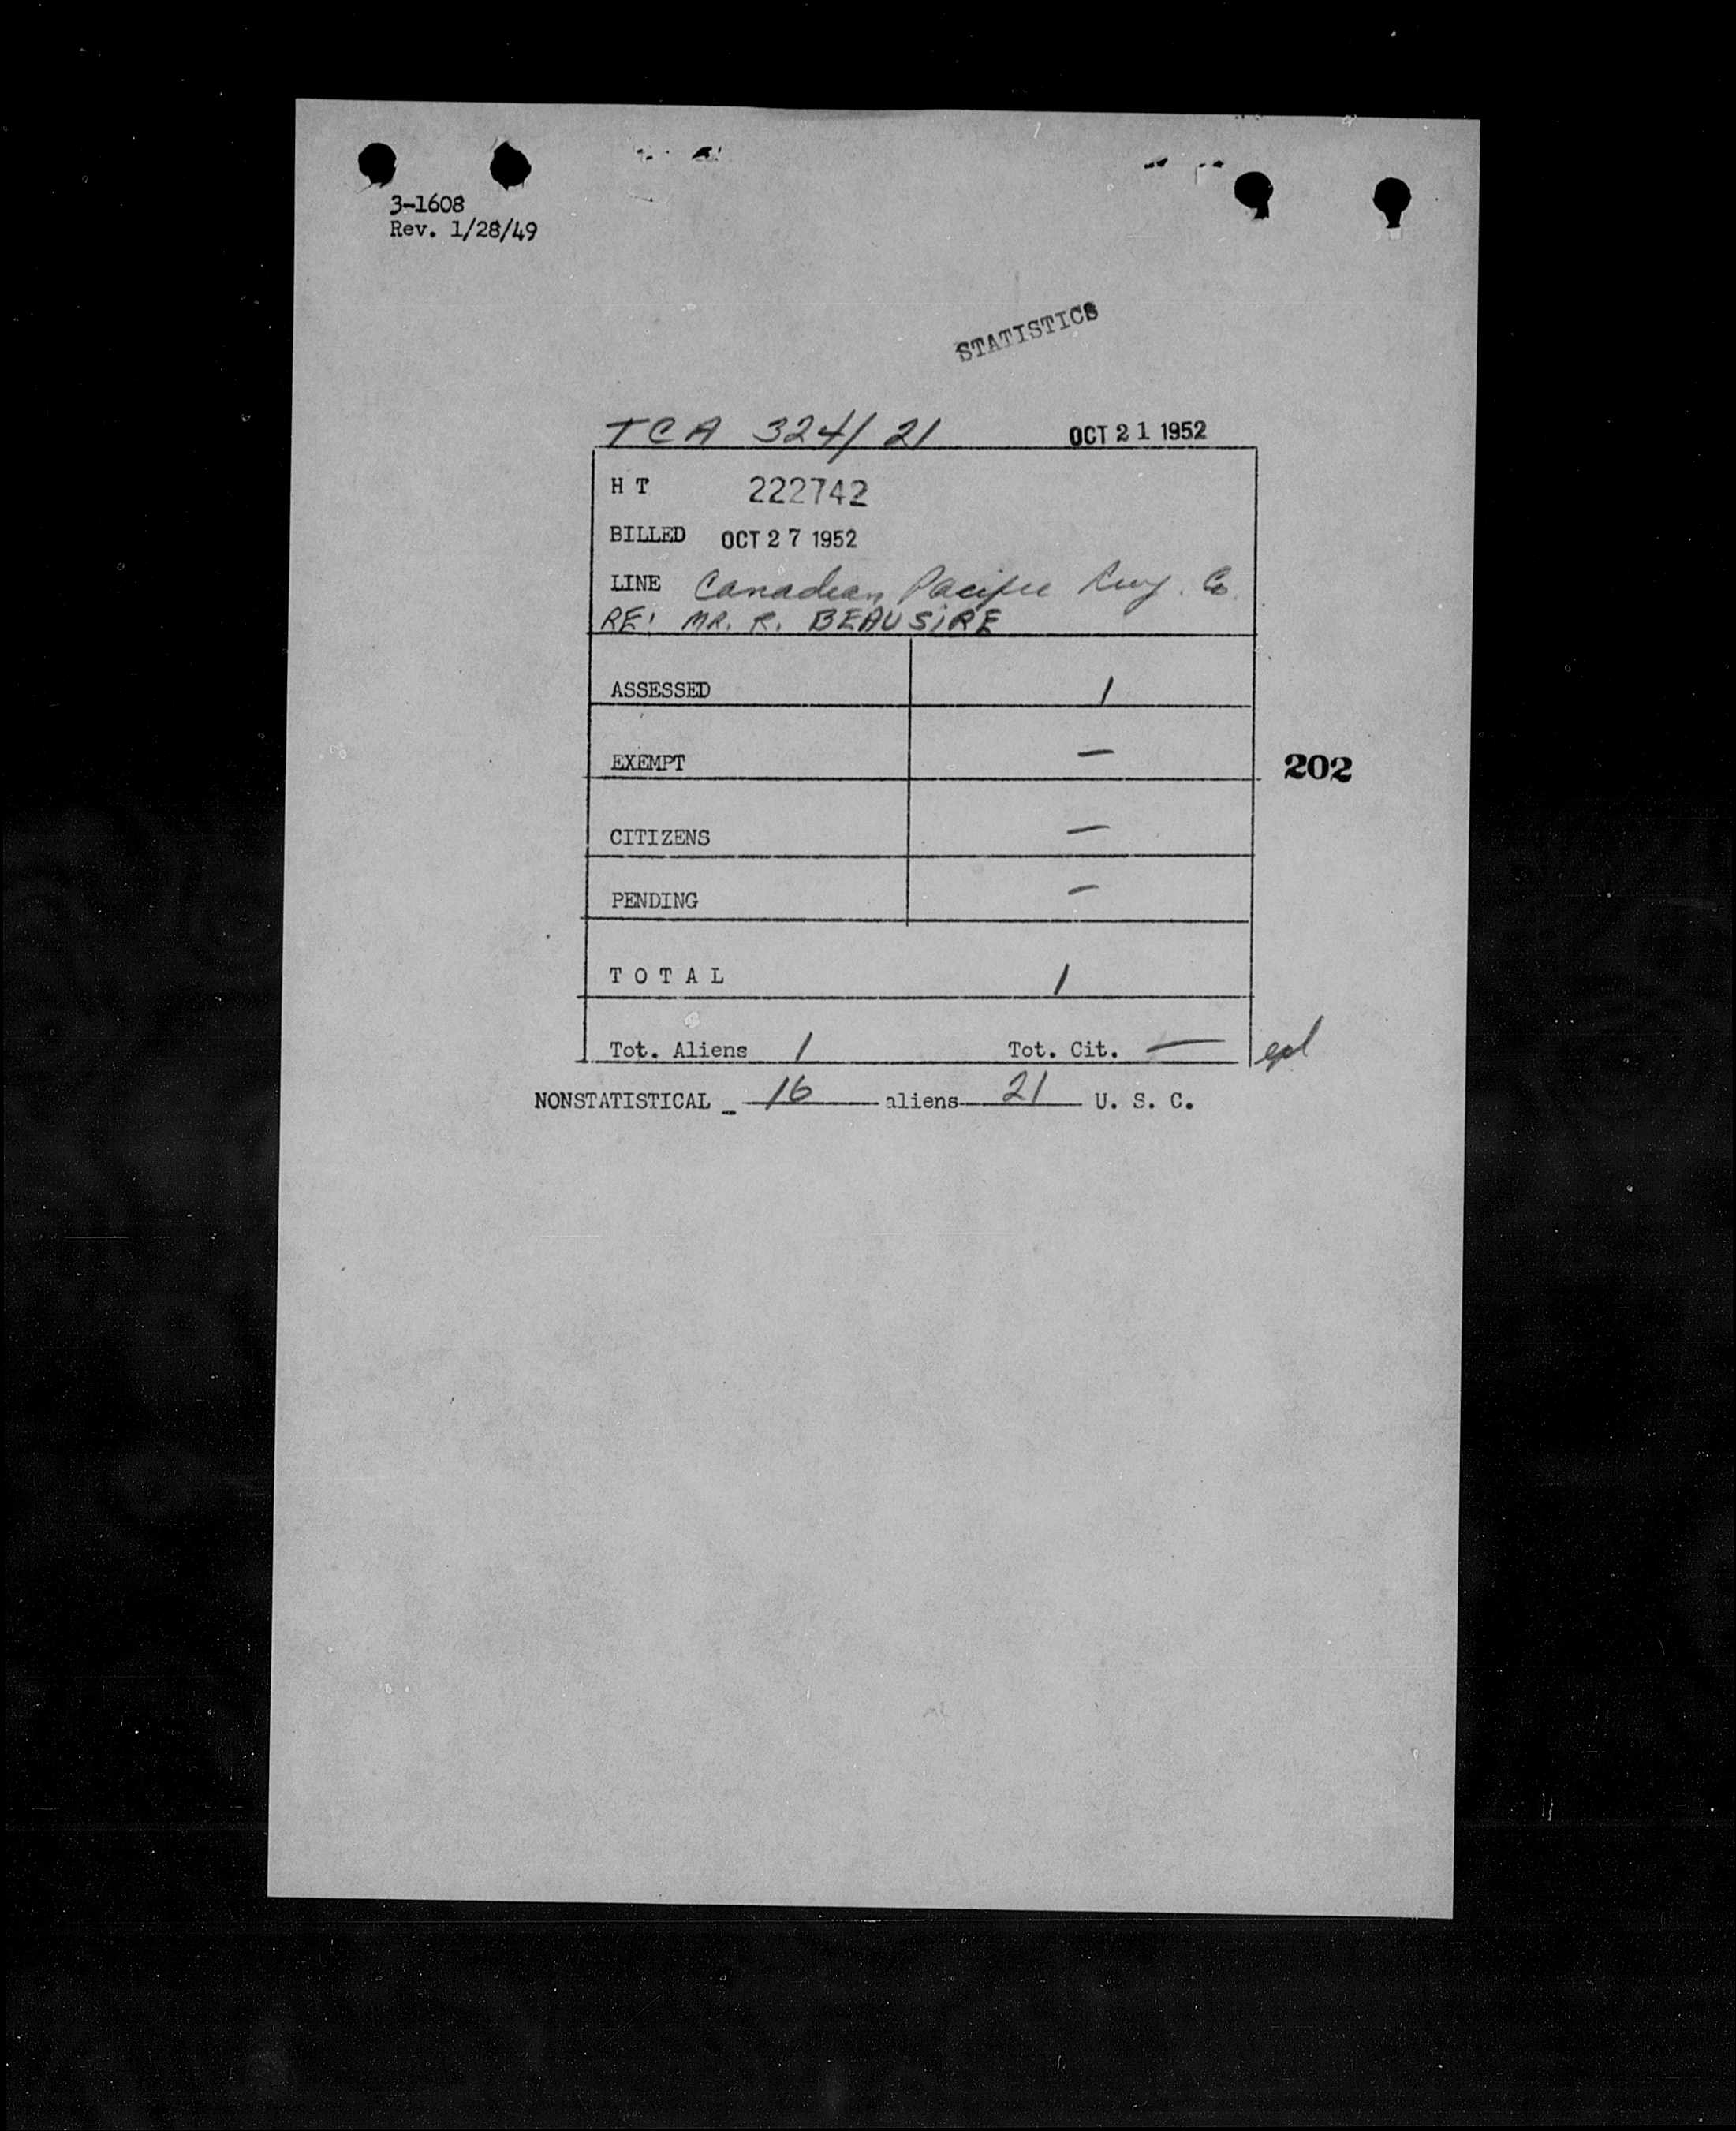 3-1608
Rev. 1/28/49
STATISTICS
TCA 324/21 OCT 21 1952
H T 222742
BILLED OCT 27 1952
LINE Canadian Pacific Rwy. Co.
RE: MR. R. BEAUSIRE
ASSESSED 1
EXEMPT —
202
CITIZENS —
PENDING —
T O T A L 1
Tot. Aliens 1 Tot. Cit. —
NONSTATISTICAL _ 16 aliens 21 U. S. C.